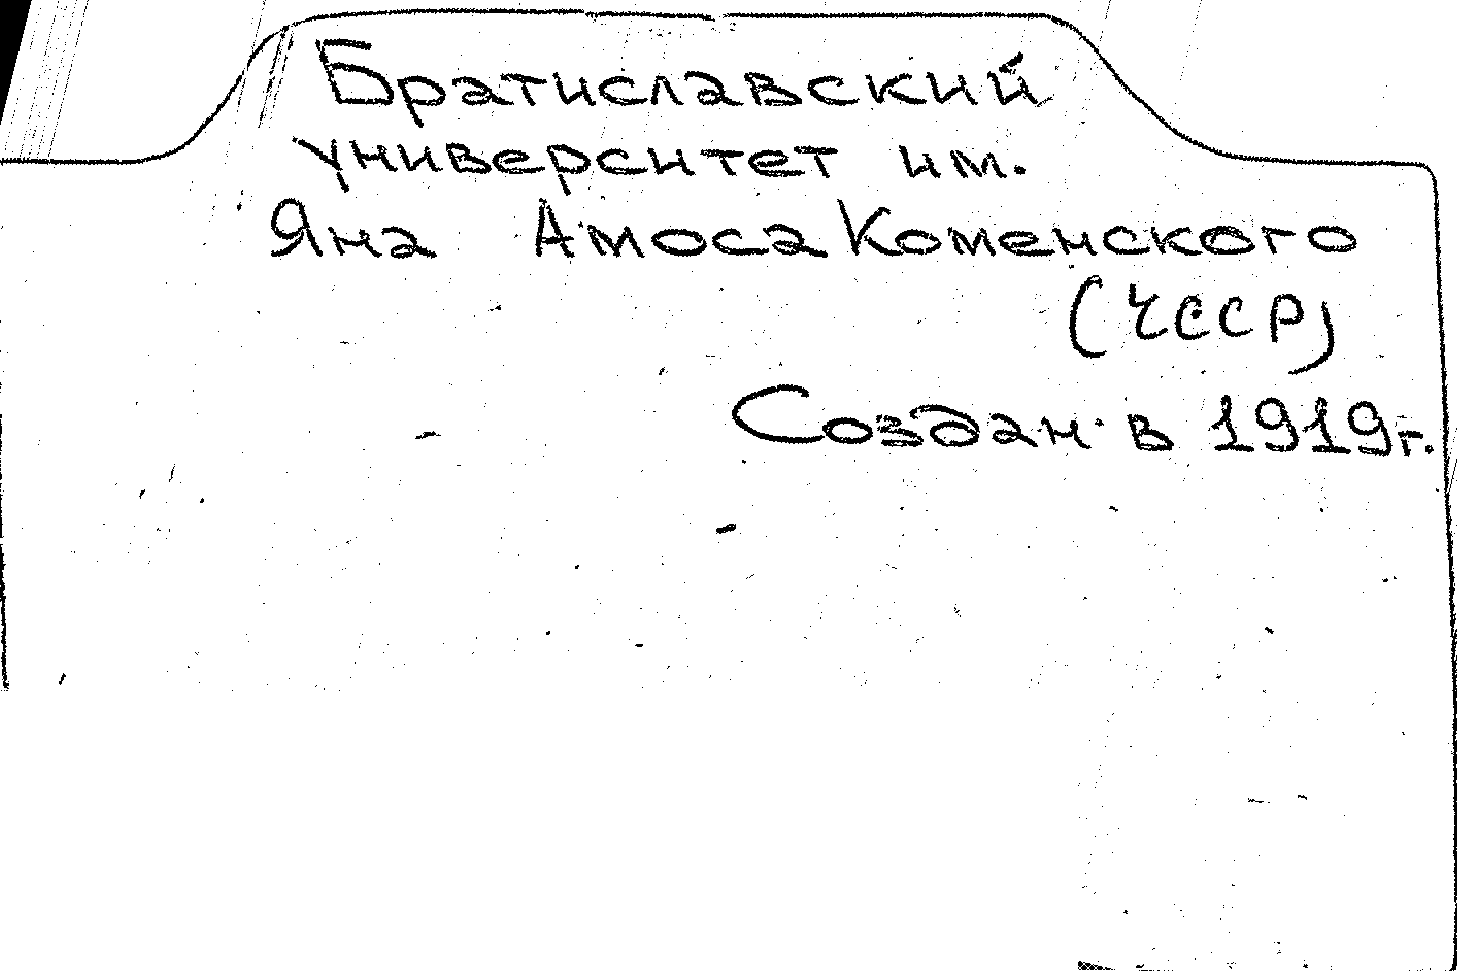 Братиславский
университет им.
Яна Амоса Коменского
(ЧССР)
Создан в 1919г.